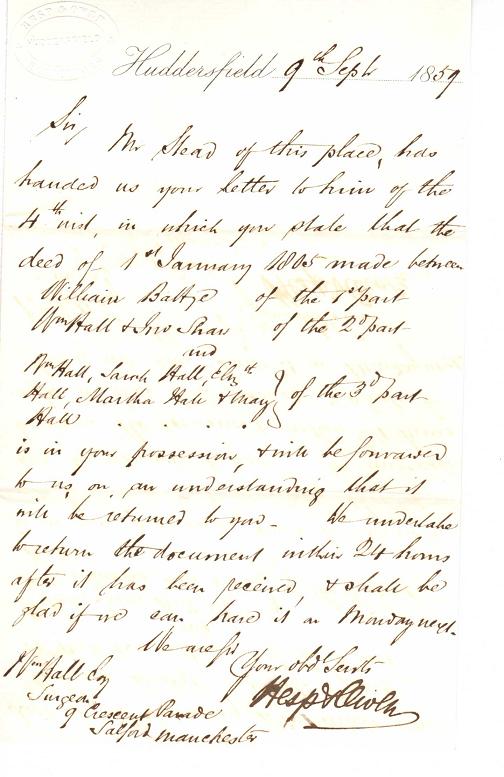 HUDDERSFIELD
Huddersfield 9th Sepr 1859
Sir,
Mr Stead of this place, has
handed us your letter to him of the
4th inst, in which you state that the
deed of 1st January 1805 made between
William Battye of the 1st part
Wm Hall & Jno Shaw of the 2d part
and
Wm Hall, Sarah Hall, Elizth
Hall, Martha Hall & Mary } of the 3d part
Hall
is in your possession, & will be forwarded
to us on an understanding that it
will be returned to you - We undertake
to return the document within 24 hours
after it has been received, & shall be
glad if we can have it on Monday next.
We are Sir
Your obdt Servts
Wm Hall Esq
Surgeon
9 Crescent Parade
Salford Manchester